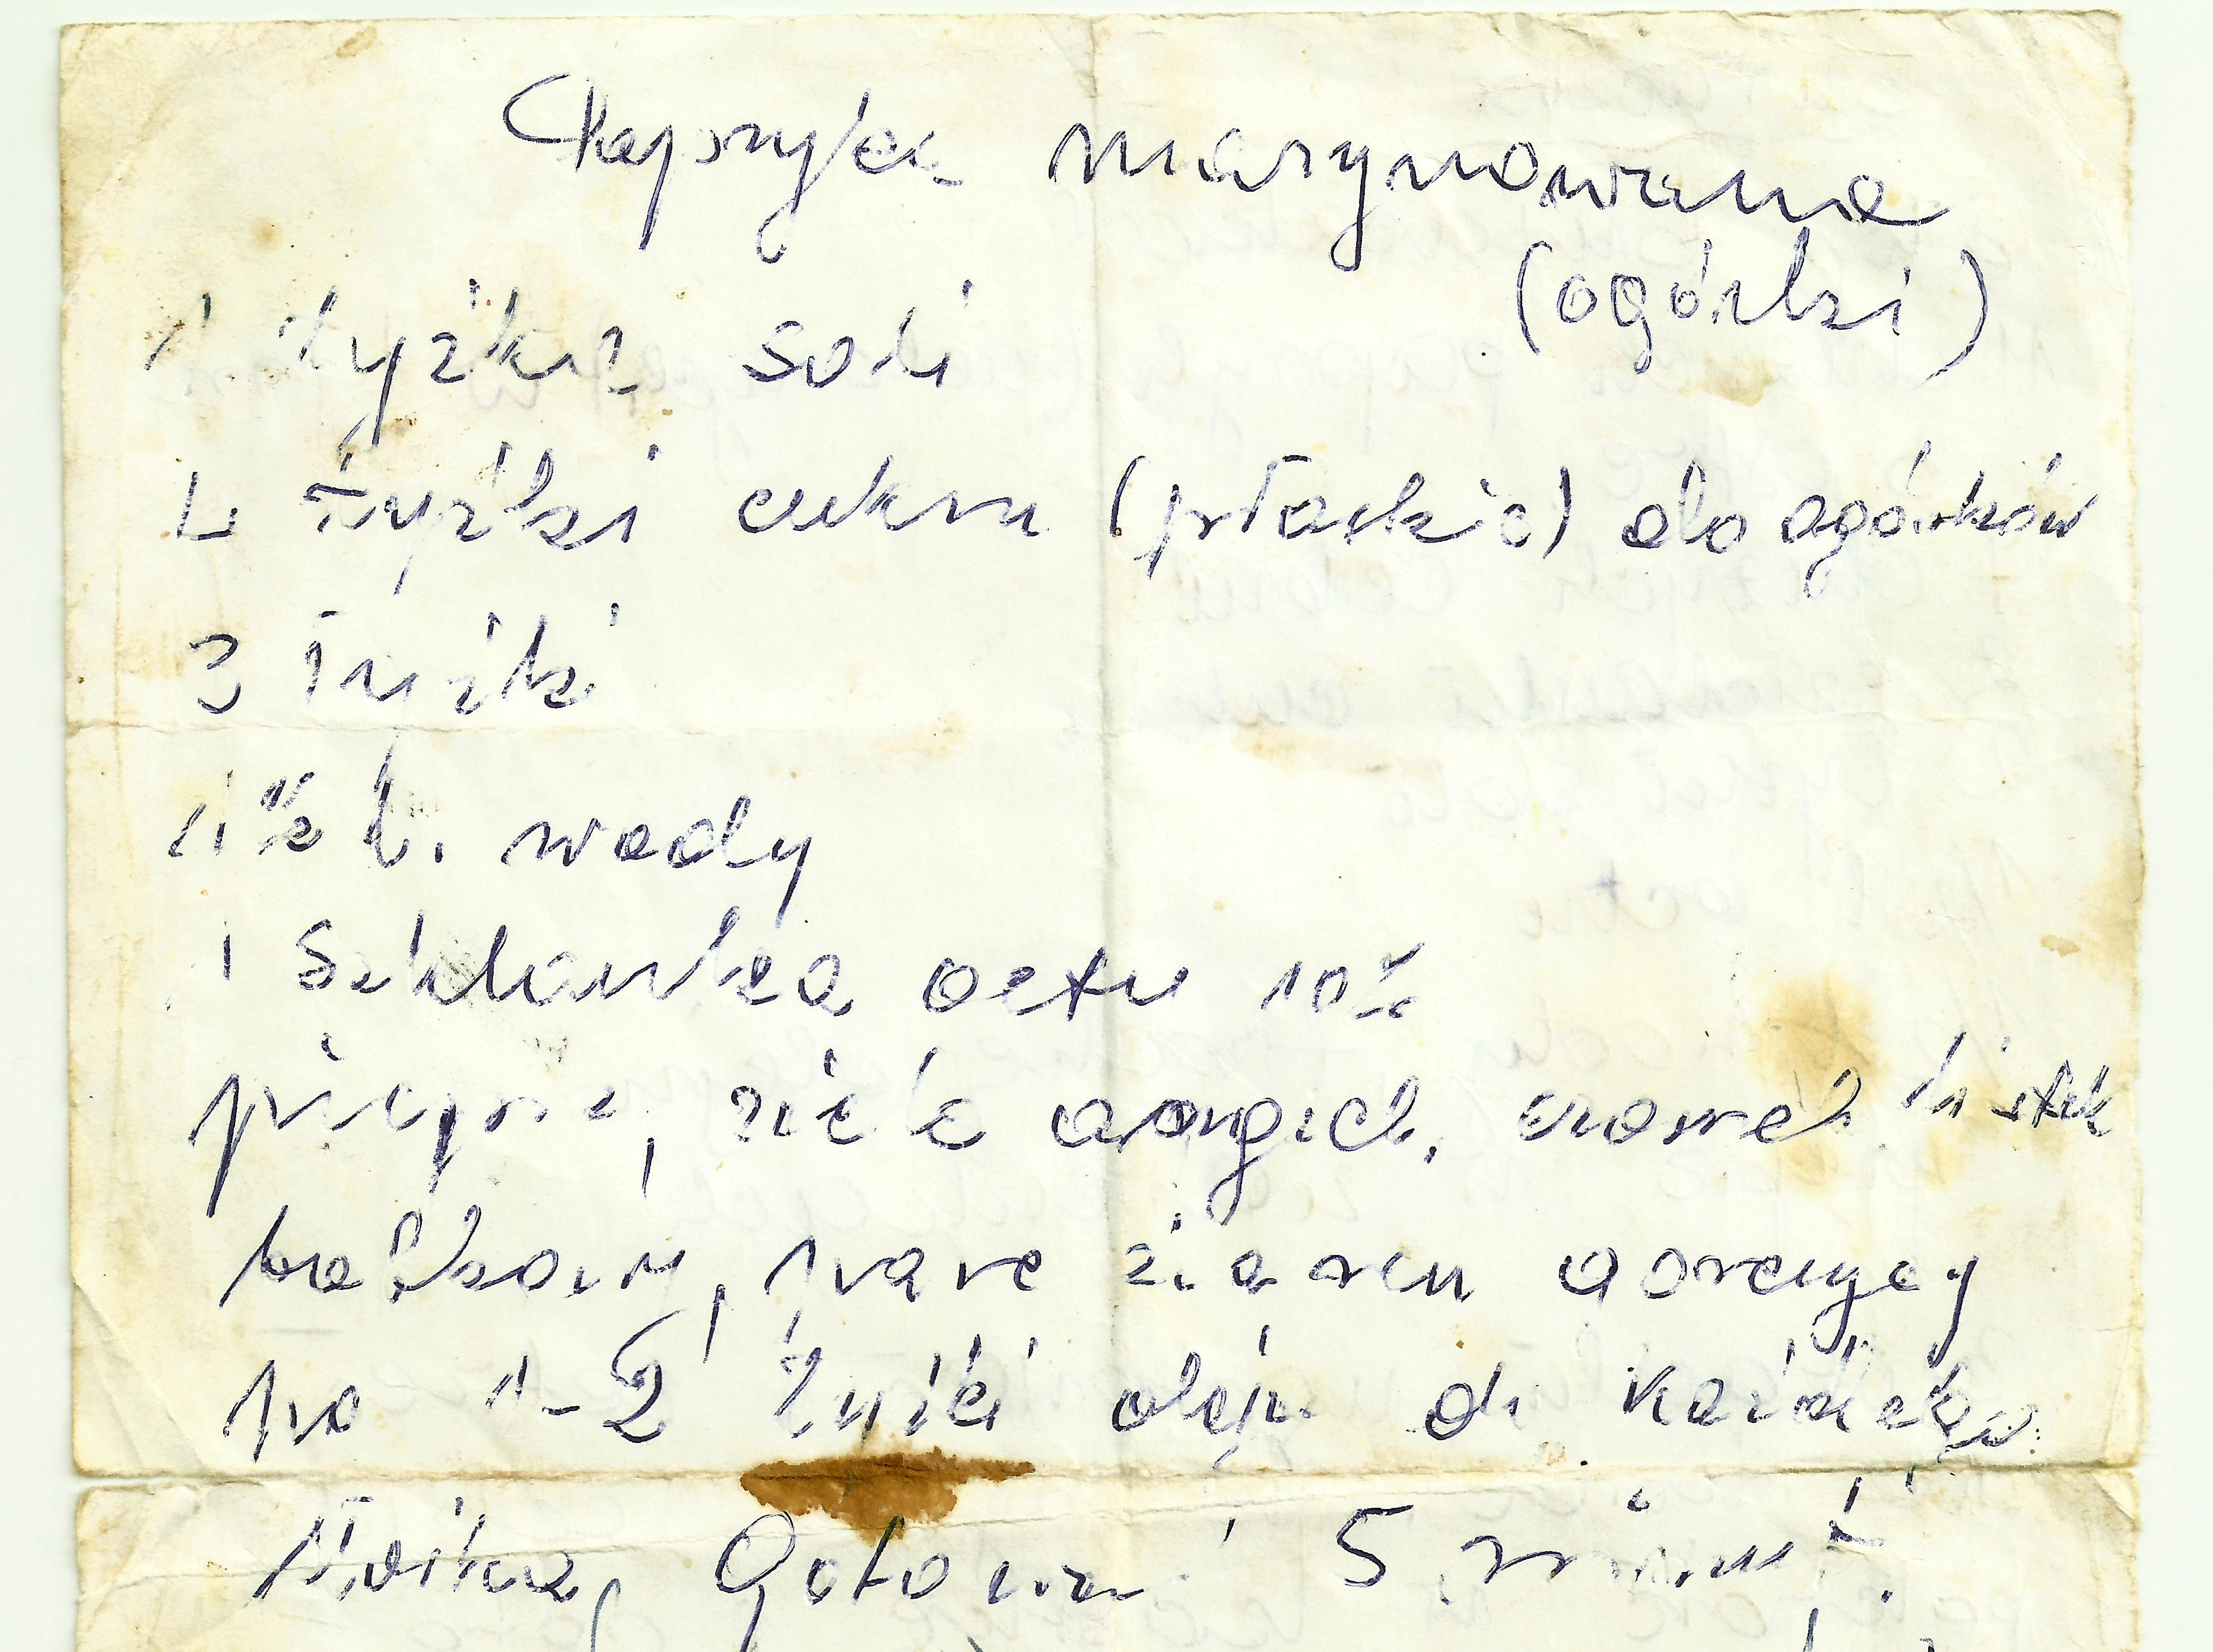 Papryka marynowana
(ogórki)
1 łyżka soli
4 łyżki cukru (płaskie) do ogórków
3 łyżki
l. wody
1 szklanka octu 10%
pieprz, ziele angiel. czosnek listek
bobkowy, parę ziaren gorczycy
po 1-2 łyżki oleju do każdego
słoika, Gotować 5 minut.